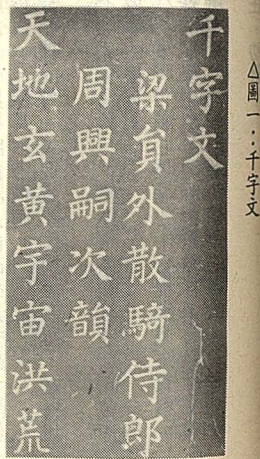 △圖一：千字文
千字文
梁貟外散騎侍郎
周興嗣次韻
天地玄黃宇宙洪荒